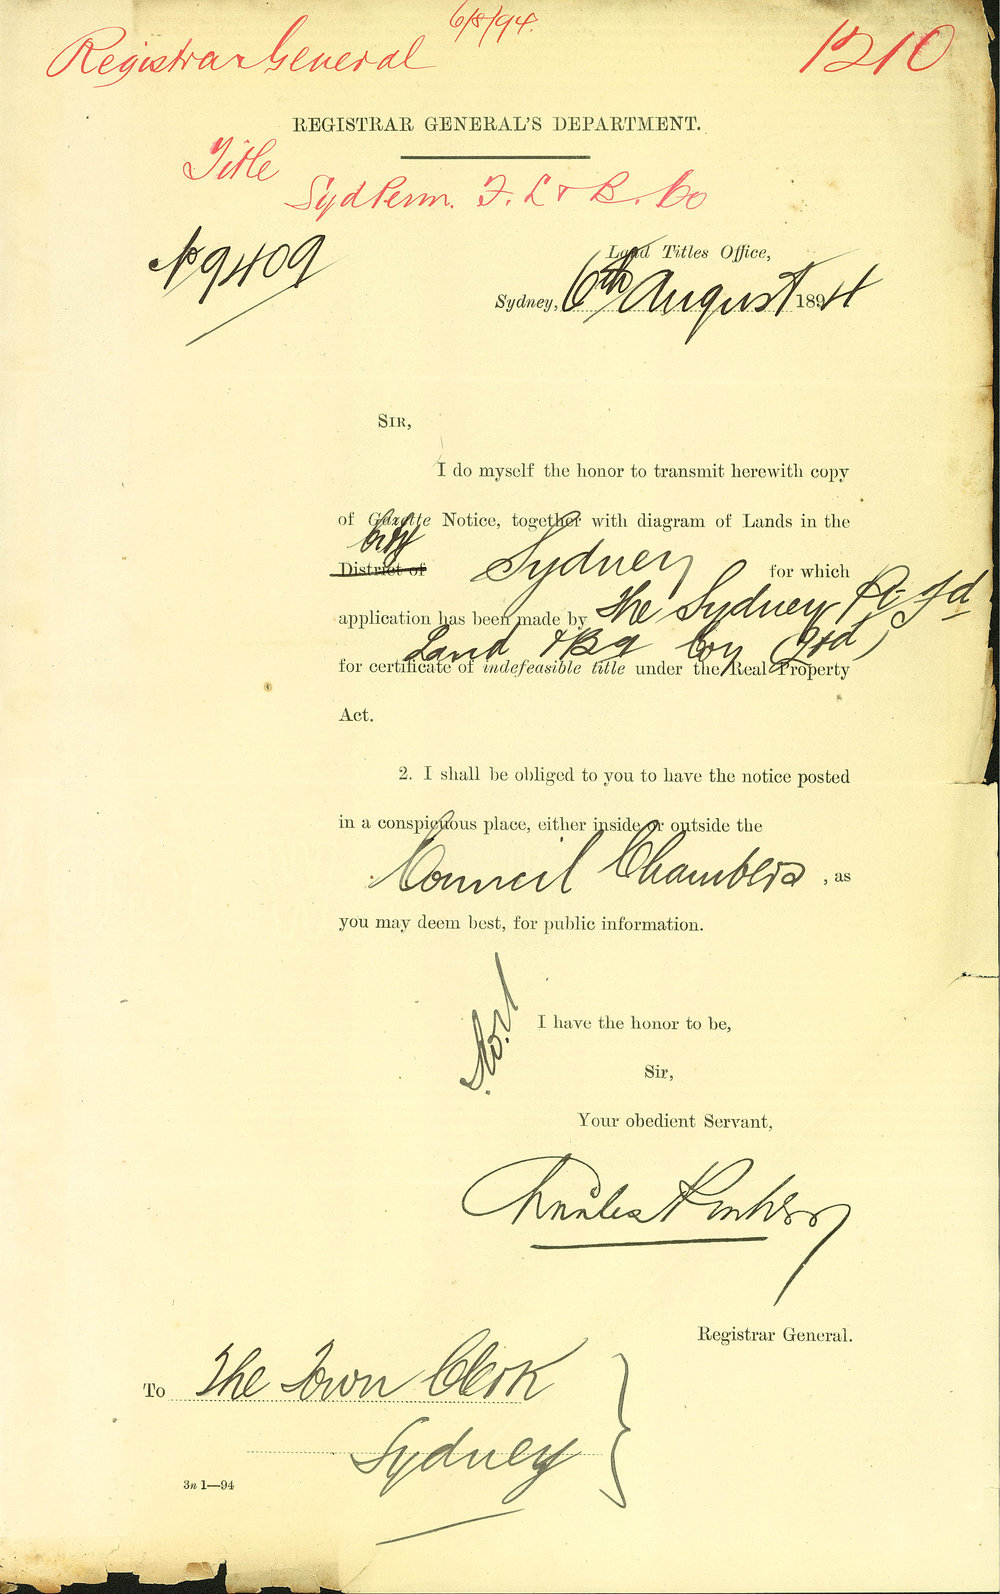 6/8/94.
Registrar General
1210
REGISTRAR GENERAL'S DEPARTMENT.
Title
Syd Perm. F. L & B. Co
No 9409
Land Titles Office,
Sydney, 6th August 1894
SIR,
I do myself the honor to transmit herewith copy
of Gazette Notice, together with diagram of Lands in the
City
District of Sydney for which
application has been made by The Sydney Pt Fd
Land & Bg Coy (Ltd)
for certificate of indefeasible title under the Real Property
Act.
2. I shall be obliged to you to have the notice posted
in a conspicuous place, either inside or outside the
Council Chambers, as
you may deem best, for public information.
I have the honor to be,
Sir,
Your obedient Servant,
Charles
Registrar General.
To The Town Clerk
Sydney
3n 1—94